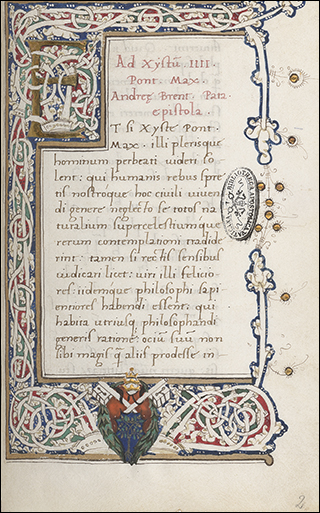 Ad Xystũ IIII ·
Pont. Max.
Andreę Brent. Pata.
epistola.
ET si Xyste Pont.
Max. illi plerisque
hominum perbeati uideri so
lent: qui humanis rebus spre
tis nostroque hoc ciuili viuen
di genere neglecto se totos na
turalium supercelestiumque
rerum contemplationi tradide
rint: tamen si rectis sensibus
iudicari licet: uiri illi felicio
res: iidemque philosophi sapi
entiores habendi essent: qui
habita utriusq philosophandi
generis ratione: ociũ suũ non
sibi magis q̃ aliis prodesse in
2